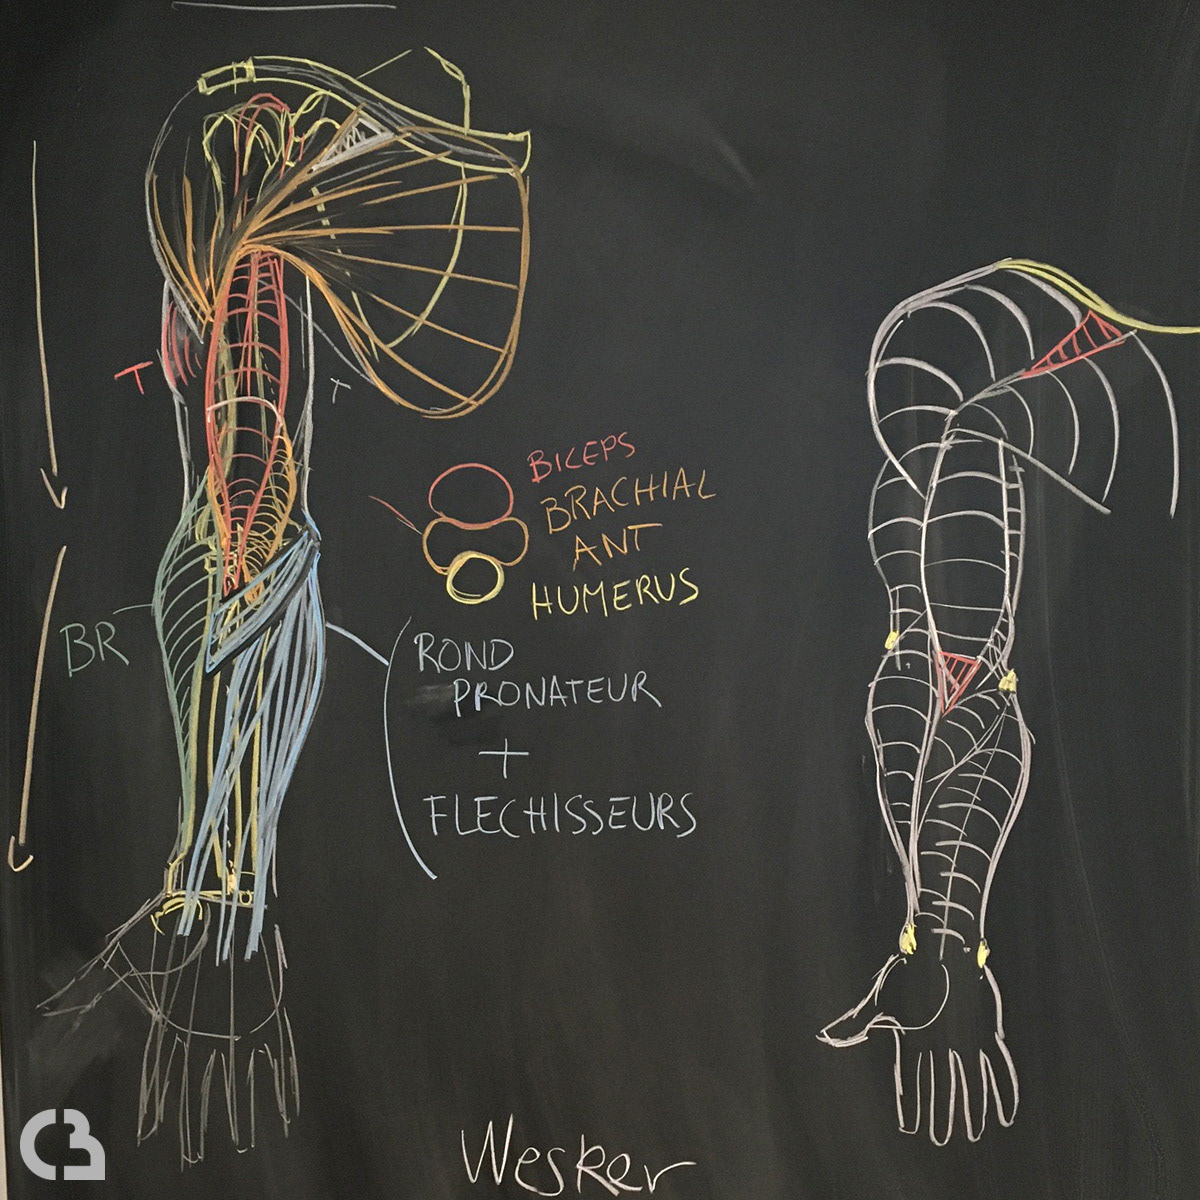 T
T
BICEPS
BRACHIAL
ANT
HUMERUS
BR
ROND
PRONATEUR
+
FLECHISSEURS
Wesker
CB